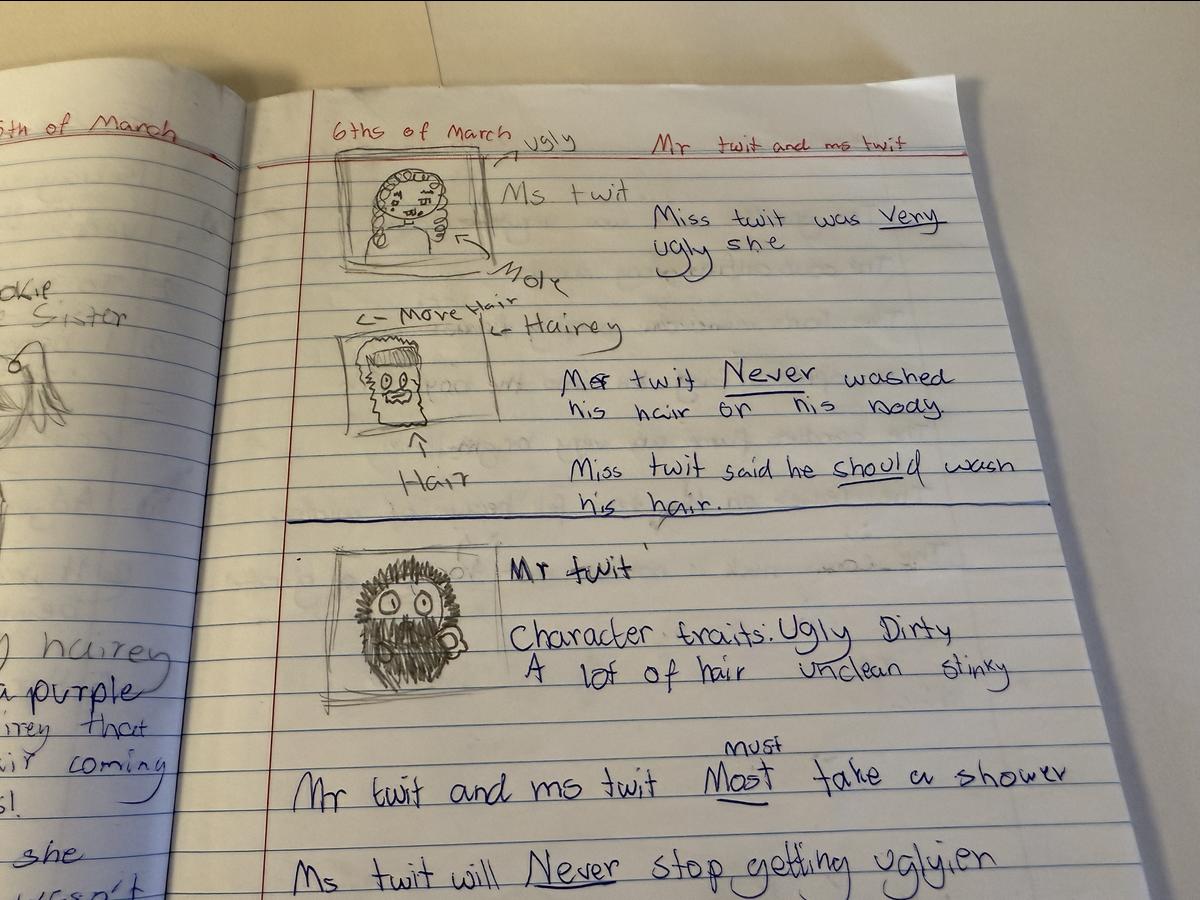 5th of March
okie
e Sister
y hairey
a purple
irey that
air coming
s!
she
wasn't
6ths of March
Mr twit and ms twit
ugly
Ms twit
Mole
Miss twit was very
ugly she
<- More Hair
<- Hairey
Hair
Mr twit Never washed
his hair or his body.
Miss twit said he should wash
his hair.
Mr twit
Character traits: Ugly Dirty
A lot of hair unclean stinky
must
Mr twit and ms twit Most take a shower
Ms twit will Never stop getting uglyier